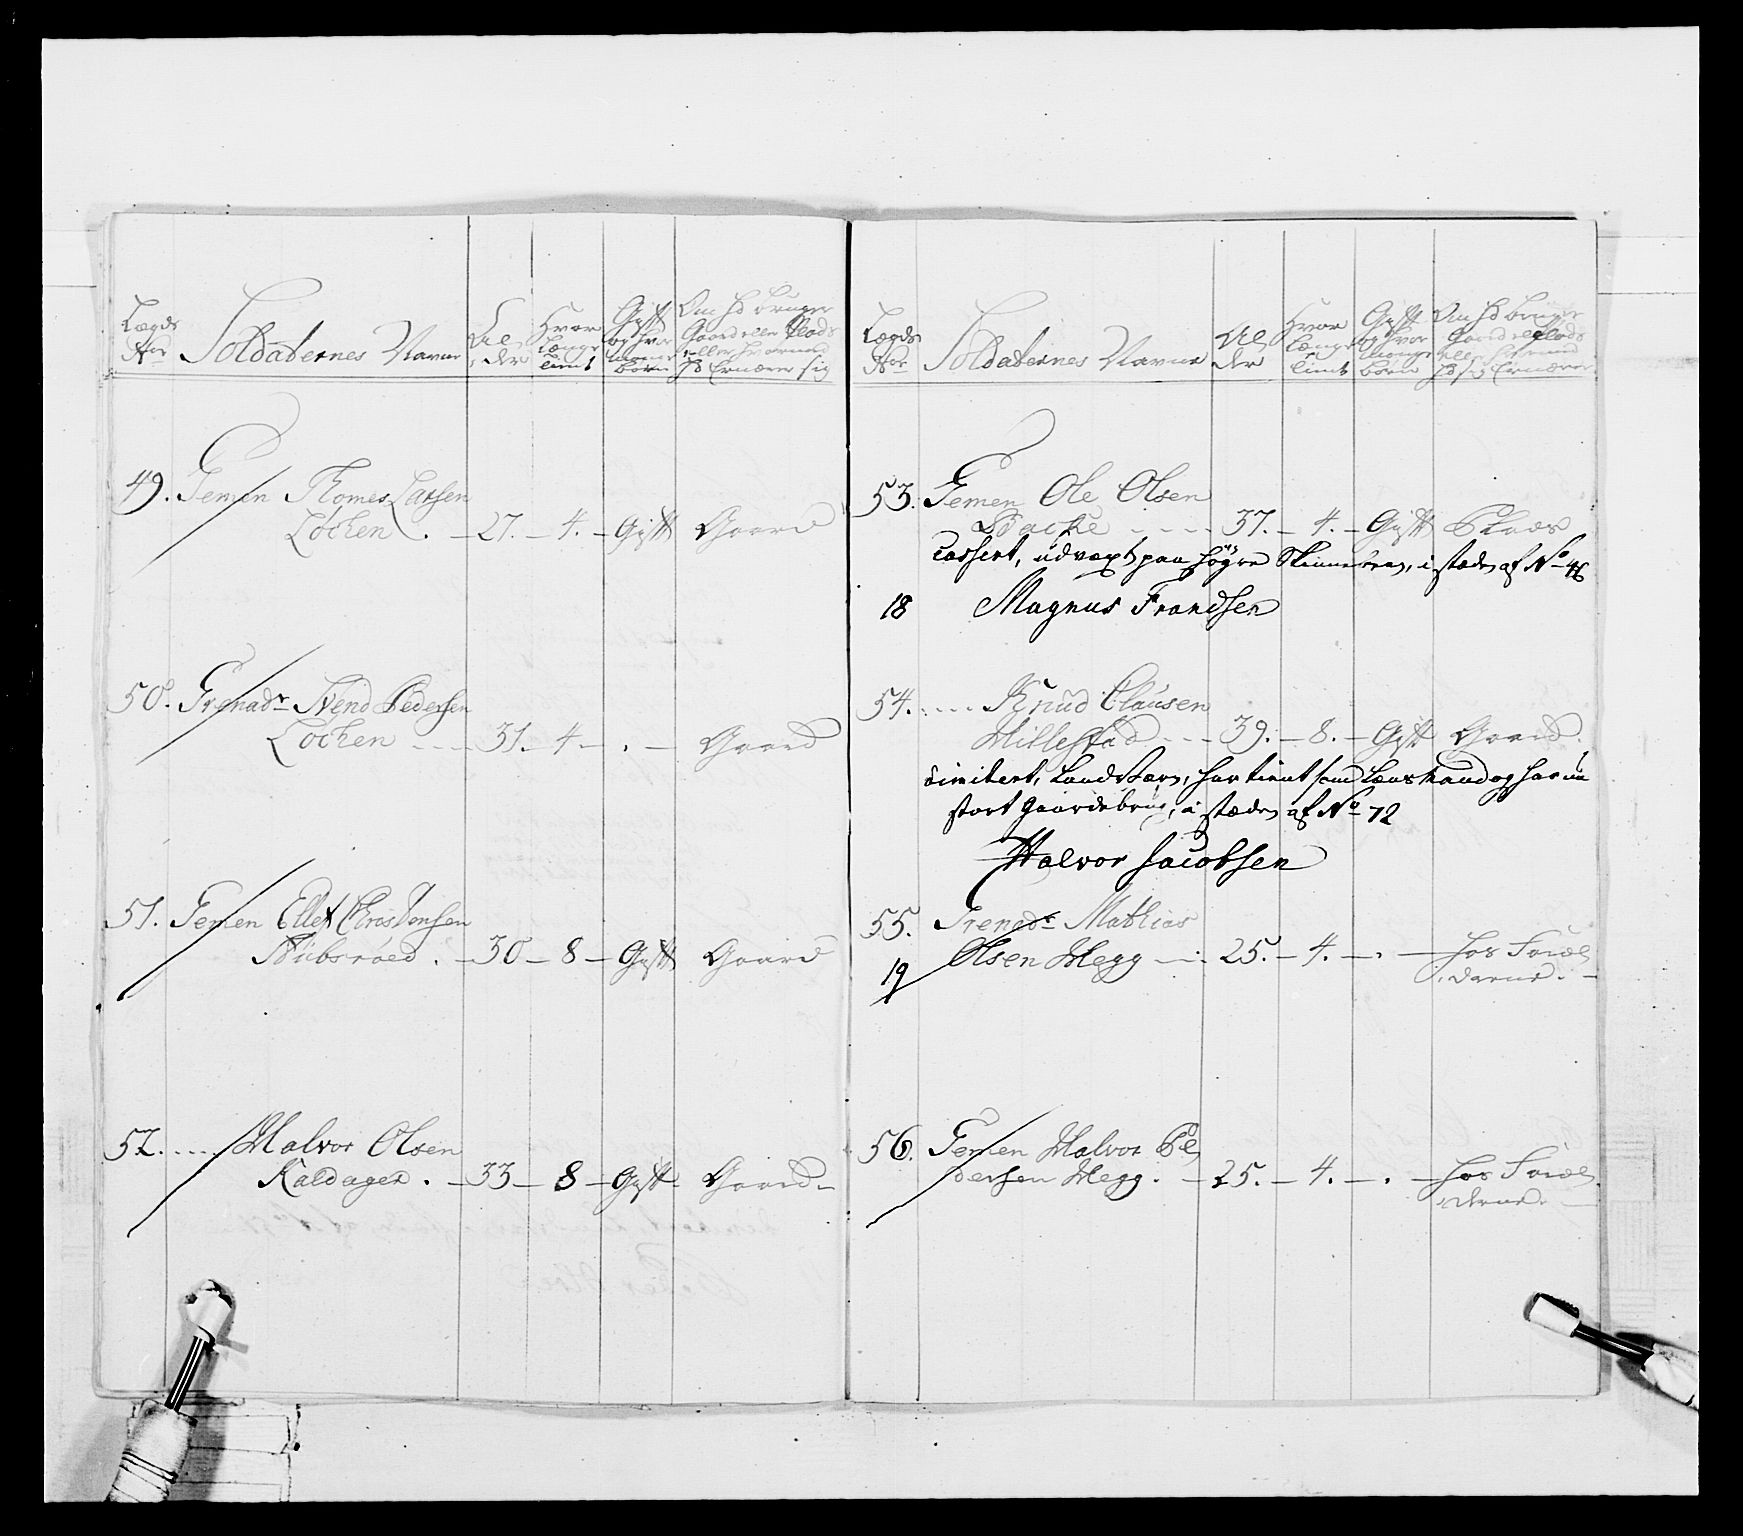 Lægds
Nor
Soldaternes Navne
Al
der
Hvor
længe
tient
Gift
og hvor
mange
børn
Om Hd bruger
Gaard eller Plads
eller hvormed
Hd Ernærer sig
49. Gemen Thomes Larsen
Lochen . – 27. – 4. – Gift Gaard
50. Grenadr Svend Pedersen
Lochen 31 – 4 – . – Gaard
51. Gemen Ellef Christensen
30 – 8 – Gift Gaard
52. Halvor Olsen
Kaldager . – 33 – 8 – Gift – Gaard –
Lægds
Nor
Soldaternes Navne
Al
der
Hvor
længe
tient
Gift
og hvor
mange
børn
Om Hd bruger
Gaard eller Plads
eller hvormed
Hd sig Ernærer
53. Gemen Ole Olsen
Backe 37. – 4. – Gift Plads
Cassert, udvæxt paa højre Skinnebeen, i stæden af No 46
18 Magnus Frandsen
54. Knud Clausen
Hillestad 39. – 8. – Gift Gaard.
dimitert, Landværn, har tient som Lænsmand og har en
stort Gaardsbrug, i stæden af No 72
Halvor Jacobsen
55. Grenadr Mathias
Olsen Hegg 25. – 4. – . – hos Foræl
19 derne. –
56. Gemen Halvor Pe
dersen Hegg . – 25. – 4. – . – hos Foræl
derne. –